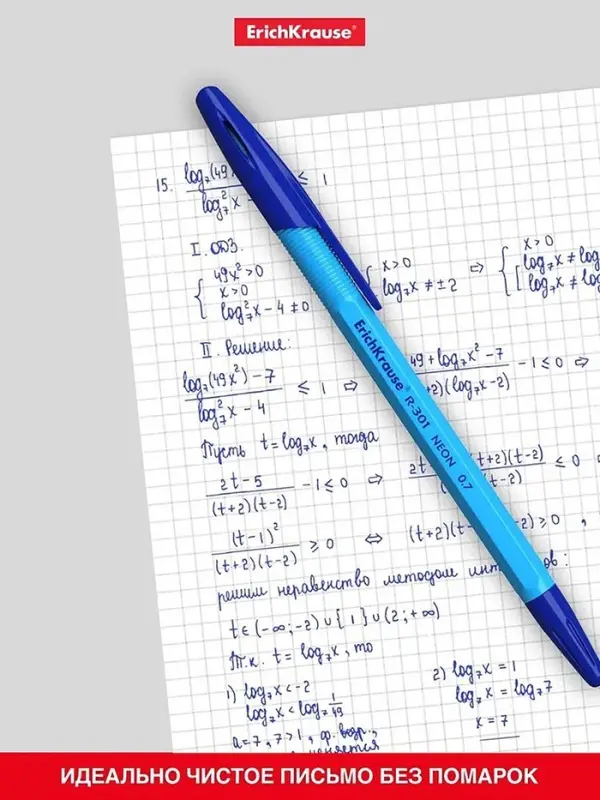 ErichKrause®
15. log₇(49
log₇²x - ≤ 1
I. ОДЗ.
{ 49x² > 0
x > 0
log₇²x - 4 ≠ 0
{ x > 0
log₇x ≠ ±2 ⇒
{ x > 0
[ log₇x ≠ log
log₇x ≠ log
II. Решение:
log₇(49x²) - 7
log₇²x - 4 ≤ 1 ⇒
49 + log₇x² - 7
+2)(log₇x - 2) - 1 ≤ 0 ⇒
Пусть t = log₇x, тогда
2t - 5
(t+2)(t-2) - 1 ≤ 0 ⇒
2t (t+2)(t-2)
t-2) ≤ 0
(t-1)²
(t+2)(t-2) ≥ 0 ⇔ (t+2)(t -2) ≥ 0,
решим неравенство методом инт ов:
t ∈ (-∞; -2) ∪ { 1 } ∪ (2; +∞)
Т.к. t = log₇x, то
1) log₇x < -2
log₇x < log₇ 1/49
a = 7, 7 > 1, ф. возр.,
2) log₇x = 1
log₇x = log₇7
x = 7
ErichKrause® R-301 NEON 0.7
ИДЕАЛЬНО ЧИСТОЕ ПИСЬМО БЕЗ ПОМАРОК